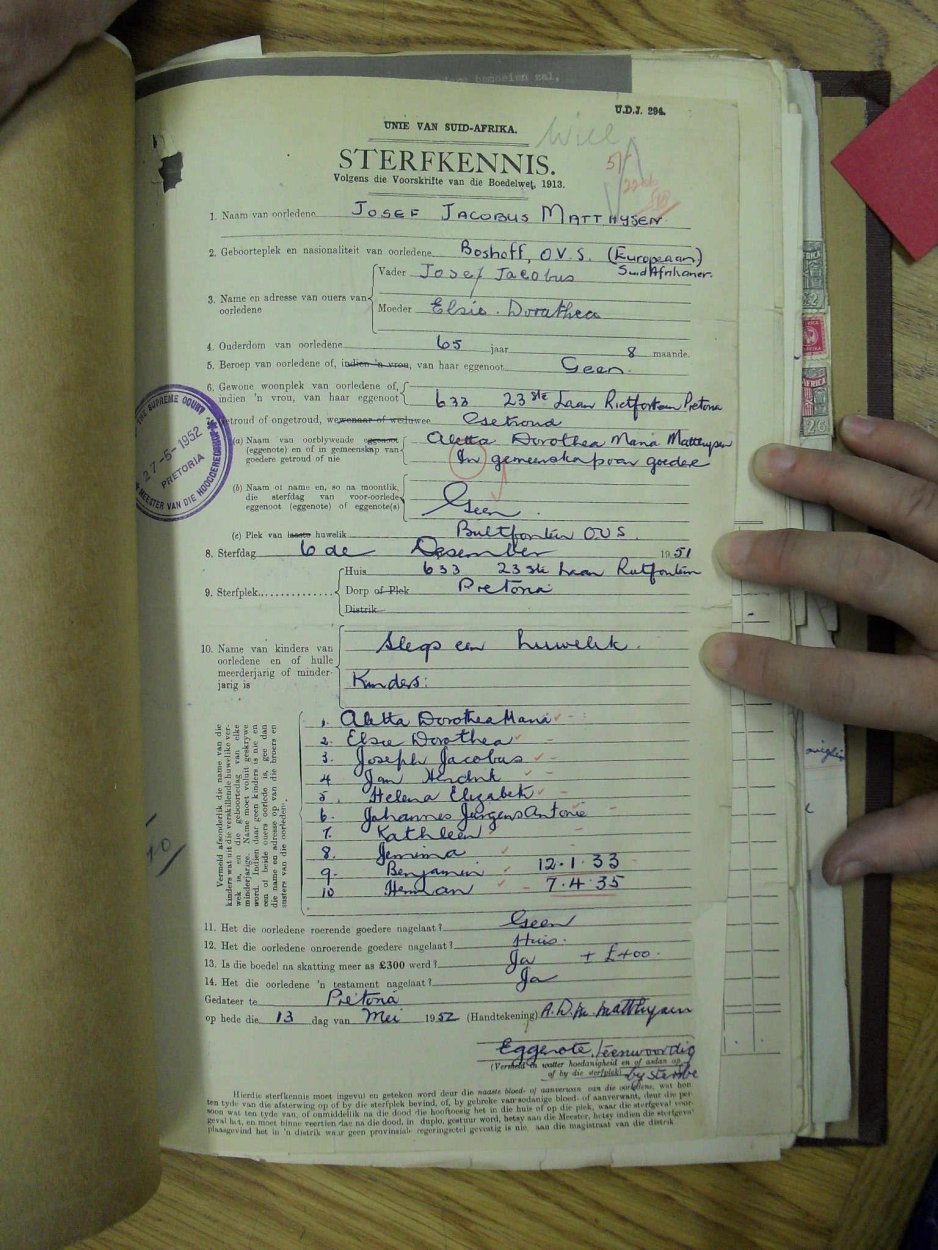 U.D.J. 294.
UNIE VAN SUID-AFRIKA.
Will
STERFKENNIS.
Volgens die Voorskrifte van die Boedelwet, 1913.
1. Naam van oorledene JOSEF JACOBUS MATTHYSEN
2. Geboorteplek en nasionaliteit van oorledene Boshoff, O.V.S. (Europeaan)
Suid Afrikaner.
3. Name en adresse van ouers van oorledene
Vader Josef Jacobus
Moeder Elsie Dorothea
4. Ouderdom van oorledene 65 jaar 8 maande.
5. Beroep van oorledene of, indien 'n vrou, van haar eggenoot Geen.
6. Gewone woonplek van oorledene of,
indien 'n vrou, van haar eggenoot 633 23ste Laan Rietfontein Pretoria
Getroud of ongetroud, wewenaar of weduwee Getroud
(a) Naam van oorblywende eggenoot Aletta Dorothea Maria Matthysen
(eggenote) en of in gemeenskap van
goedere getroud of nie In gemeenskap van goedere
(b) Naam of name en, so na moontlik,
die sterfdag van voor-oorlede
eggenoot (eggenote) of eggenote(s) Geen.
(c) Plek van laaste huwelik Bultfontein O.V.S.
8. Sterfdag 6de Desember 1951
9. Sterfplek
Huis 633 23ste Laan Rietfontein
Dorp of Plek Pretoria
Distrik
THE SUPREME COURT
27-5-1952
PRETORIA
MEESTER VAN DIE HOOGGEREGSHOF
10. Name van kinders van
oorledene en of hulle
meerderjarig of minder-
jarig is
Slegs een huwelik.
Kinders:
1. Aletta Dorothea Maria
2. Elsie Dorothea
3. Joseph Jacobus
4 Jan Hendrik
5. Helena Elizabeth
6. Johannes Jurgens Antonie
7. Kathleen
8. Jemima
9. Benjamin 12.1.33
10 Herman 7.4.35
Vermeld afsonderlik die name van die
kinders wat uit die verskillende huwelike ver-
wek is, en die geboortedag van elke
minderjarige. Name moet voluit geskrywe
word. Indien daar geen kinders is nie en
een of beide ouers oorlede is, gee dan
die name en adresse op van die broers en
susters van die oorledene.
11. Het die oorledene roerende goedere nagelaat? Geen
12. Het die oorledene onroerende goedere nagelaat? Huis.
13. Is die boedel na skatting meer as £300 werd? Ja ± £400.
14. Het die oorledene 'n testament nagelaat? Ja
Gedateer te Pretoria
op hede die 13 dag van Mei 1952 (Handtekening) A.D.M. Matthysen
Eggenote, teenwoordig
(Vermeld in watter hoedanigheid en of aldan op
of by die sterfplek) by sterwe
Hierdie sterfkennis moet ingevul en geteken word deur die naaste bloed- of aanverwant van die oorledene, wat
ten tyde van die afsterwing op of by die sterfplek bevind, of, by gebreke van sodanige bloed- of aanverwant, deur die per-
soon wat ten tyde van, of onmiddellik na die dood die hooftoesig het in die huis of op die plek, waar die sterfgeval voor-
geval het, en moet binne veertien dae na die dood, in duplo, gestuur word, hetsy aan die Meester, hetsy indien die sterfgeval
plaasgevind het in 'n distrik waar geen provinsiale regeringsetel gevestig is nie, aan die magistraat van die distrik